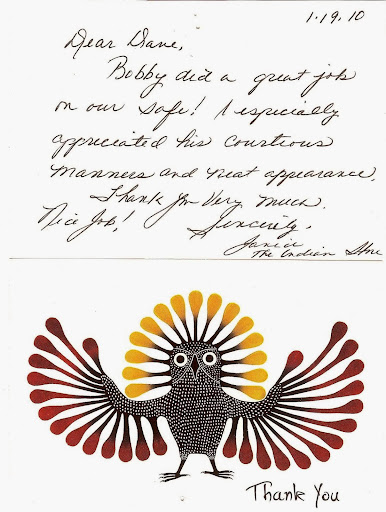 1.19.10
Dear Dane,
Bobby did a great job
on our safe! I especially
appreciated his courteous
manners and neat appearance.
Thank you Very much.
Nice Job! Sincerely,
Janice
The Indian Store
Thank You